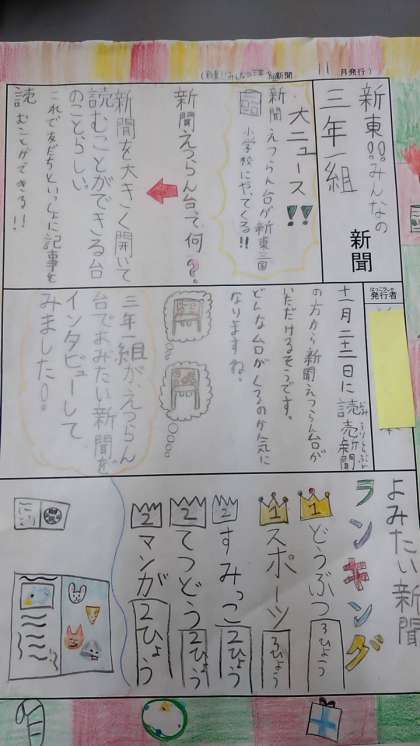 新聞
11月発行)
新東
みんなの
三年一組
新聞
大ニュース!!
新聞えつらん台が新東三国
小学校にやてくる!!
新聞えつらん台て何?
新聞を大きく開いて
読むことができる台
のことらしい。
これで友だちといっしょに記事を
読むことができる!!
はっこうしゃ
発行者
十一月二十二日に読売新聞
の方から新聞えつらん台が
いただけるそうです。
どんな台がくるのか気に
なりますね。
三年一組がえつらん
台でよみたい新聞を
インタビューして
みました。
よみたい新聞
ランキング
1 どうぶつ 3ひょう
1 スポーツ 3ひょう
2 すみっこ 2ひょう
2 てつどう 2ひょう
2 マンガ 2ひょう